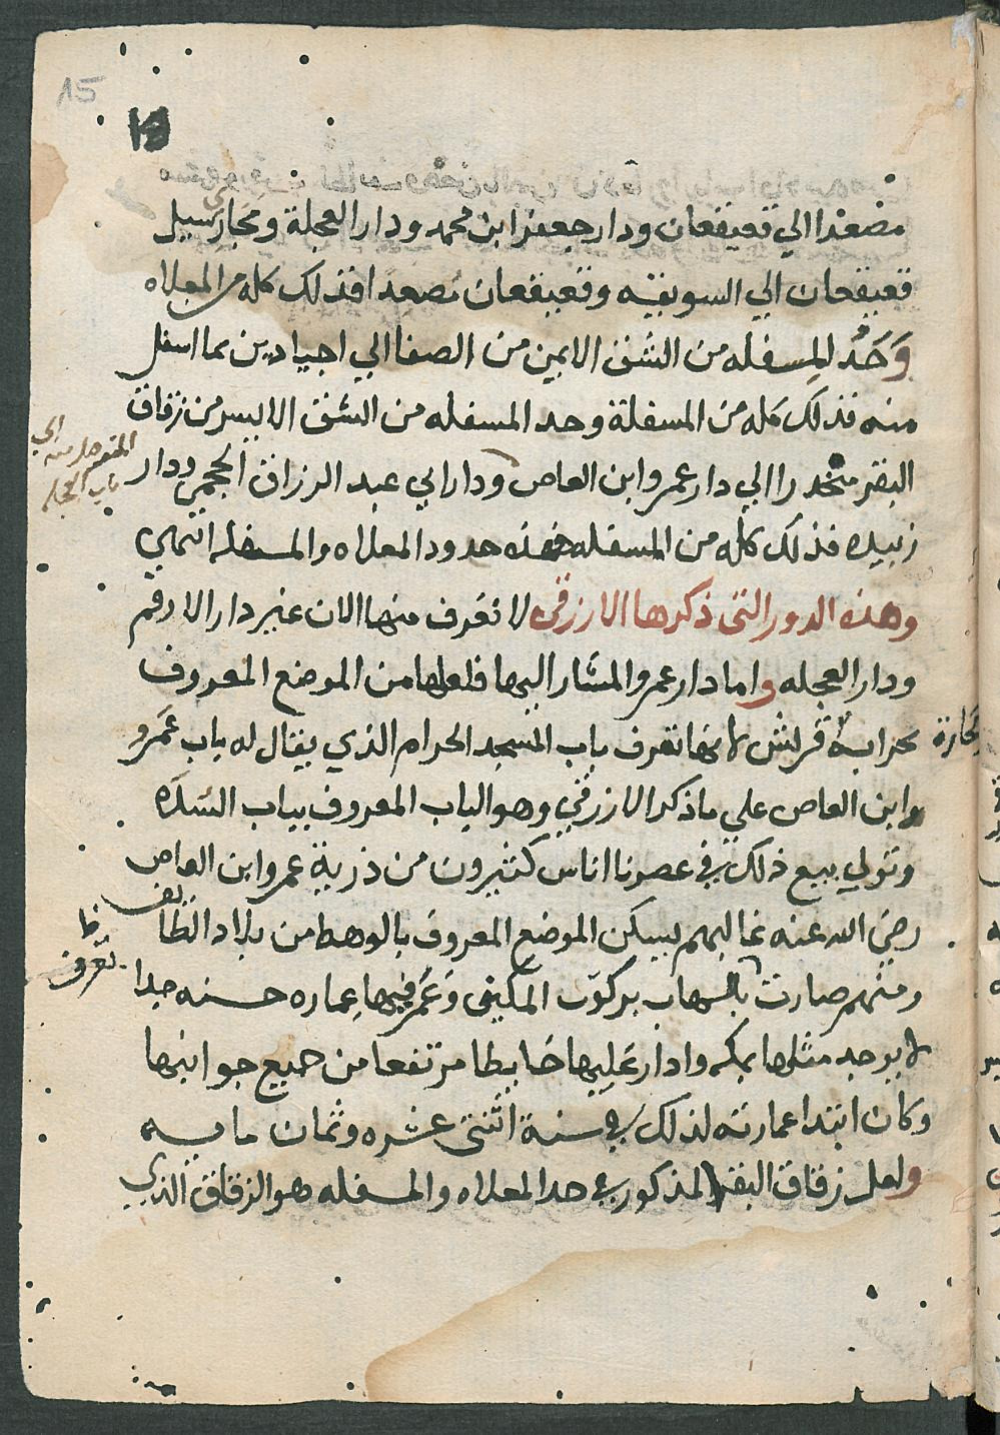 مصعدا الي قعيقعان ودار جعفر ابن محمد ودار العجلة ومجاز سيل
قعيقعان الي السويقيه وقعيقعان مصعدا فذلك كله من المعلاه
وَحَدُ المسفله من الشق الايمن من الصفا الي اجيادين بما اسفل
منه فذلك كله من المسفلة وحد المسفله من الشق الايسر من زقاق
البقر منحدرا الي دار عمرو ابن العاص ودار ابي عبد الرزاق الجمحي ودار
زبيده فذلك كله من المسفله فهذه حدود المعلاه والمسفله انتهي
وهذه الدور التى ذكرها الازرقى لا تعرف منها الان غير دار الارقم
ودار العجله واما دار عمرو المشار اليها فلعلها من الموضع المعروف
بحرابة قريش لانها تعرف باب المسجد الحرام الذي يقال له باب عمرو
وابن العاص علي ما ذكر الازرقي وهو الباب المعروف بباب السدَه
وتولي بيع ذلك في عصرنا اناس كثيرون من ذرية عمرو ابن العاص
رضي الله عنه غالبهم يسكن الموضع المعروف بالوهط من بلاد الطايف
ومنهم صارت بالشهاب بركوت المكينى وعَمَر فيها عماره حسنه جدا
لا يوجد مثلها بمكه وادار عَليها حَايطا مرتفعا من جميع جوانبها
وكان ابتدا عمارته لذلك في سنة اثنتى عشره وثمان مايه
ولعل زقاق البقر المذكور في حد المعلاه والمسفله هو الزقاق الذي
بحارة
تعرف
15